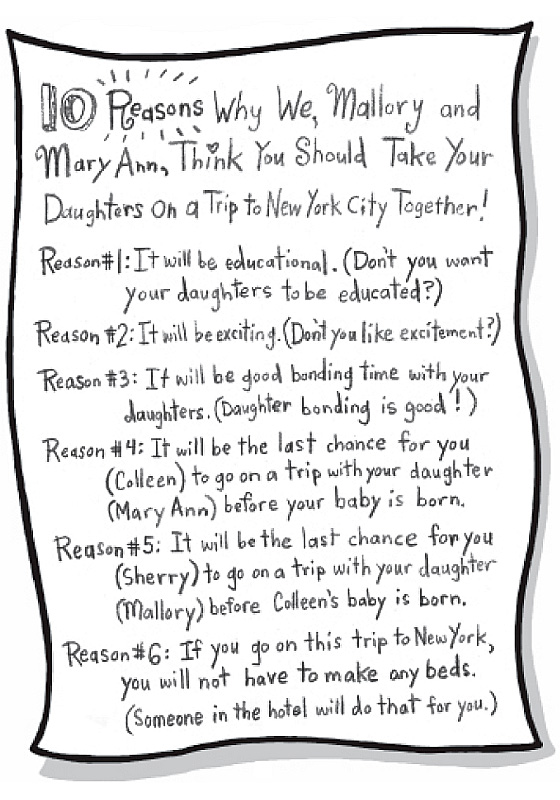 10 Reasons Why We, Mallory and
Mary Ann, Think You Should Take Your
Daughters On a Trip to New York City Together!
Reason #1: It will be educational. (Don't you want
your daughters to be educated?)
Reason #2: It will be exciting. (Don't you like excitement?)
Reason #3: It will be good bonding time with your
daughters. (Daughter bonding is good!)
Reason #4: It will be the last chance for you
(Colleen) to go on a trip with your daughter
(Mary Ann) before your baby is born.
Reason #5: It will be the last chance for you
(Sherry) to go on a trip with your daughter
(Mallory) before Colleen's baby is born.
Reason #6: If you go on this trip to New York,
you will not have to make any beds.
(Someone in the hotel will do that for you.)